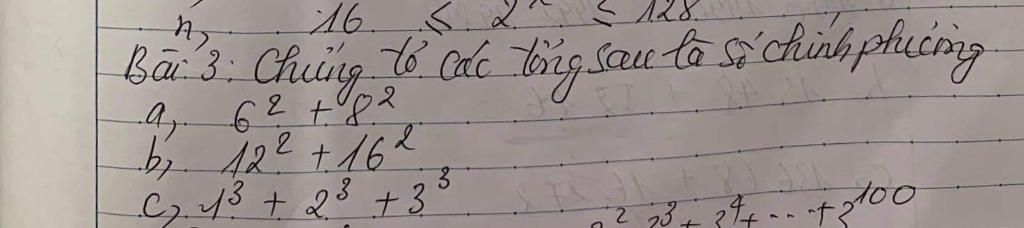 n, 16 ≤ 2ˣ ≤ 128
Bài 3: Chứng tỏ các tổng sau là số chính phương
a, 6² + 8²
b, 12² + 16²
c, 1³ + 2³ + 3³
3³ + 3⁴ + ... + 3¹⁰⁰